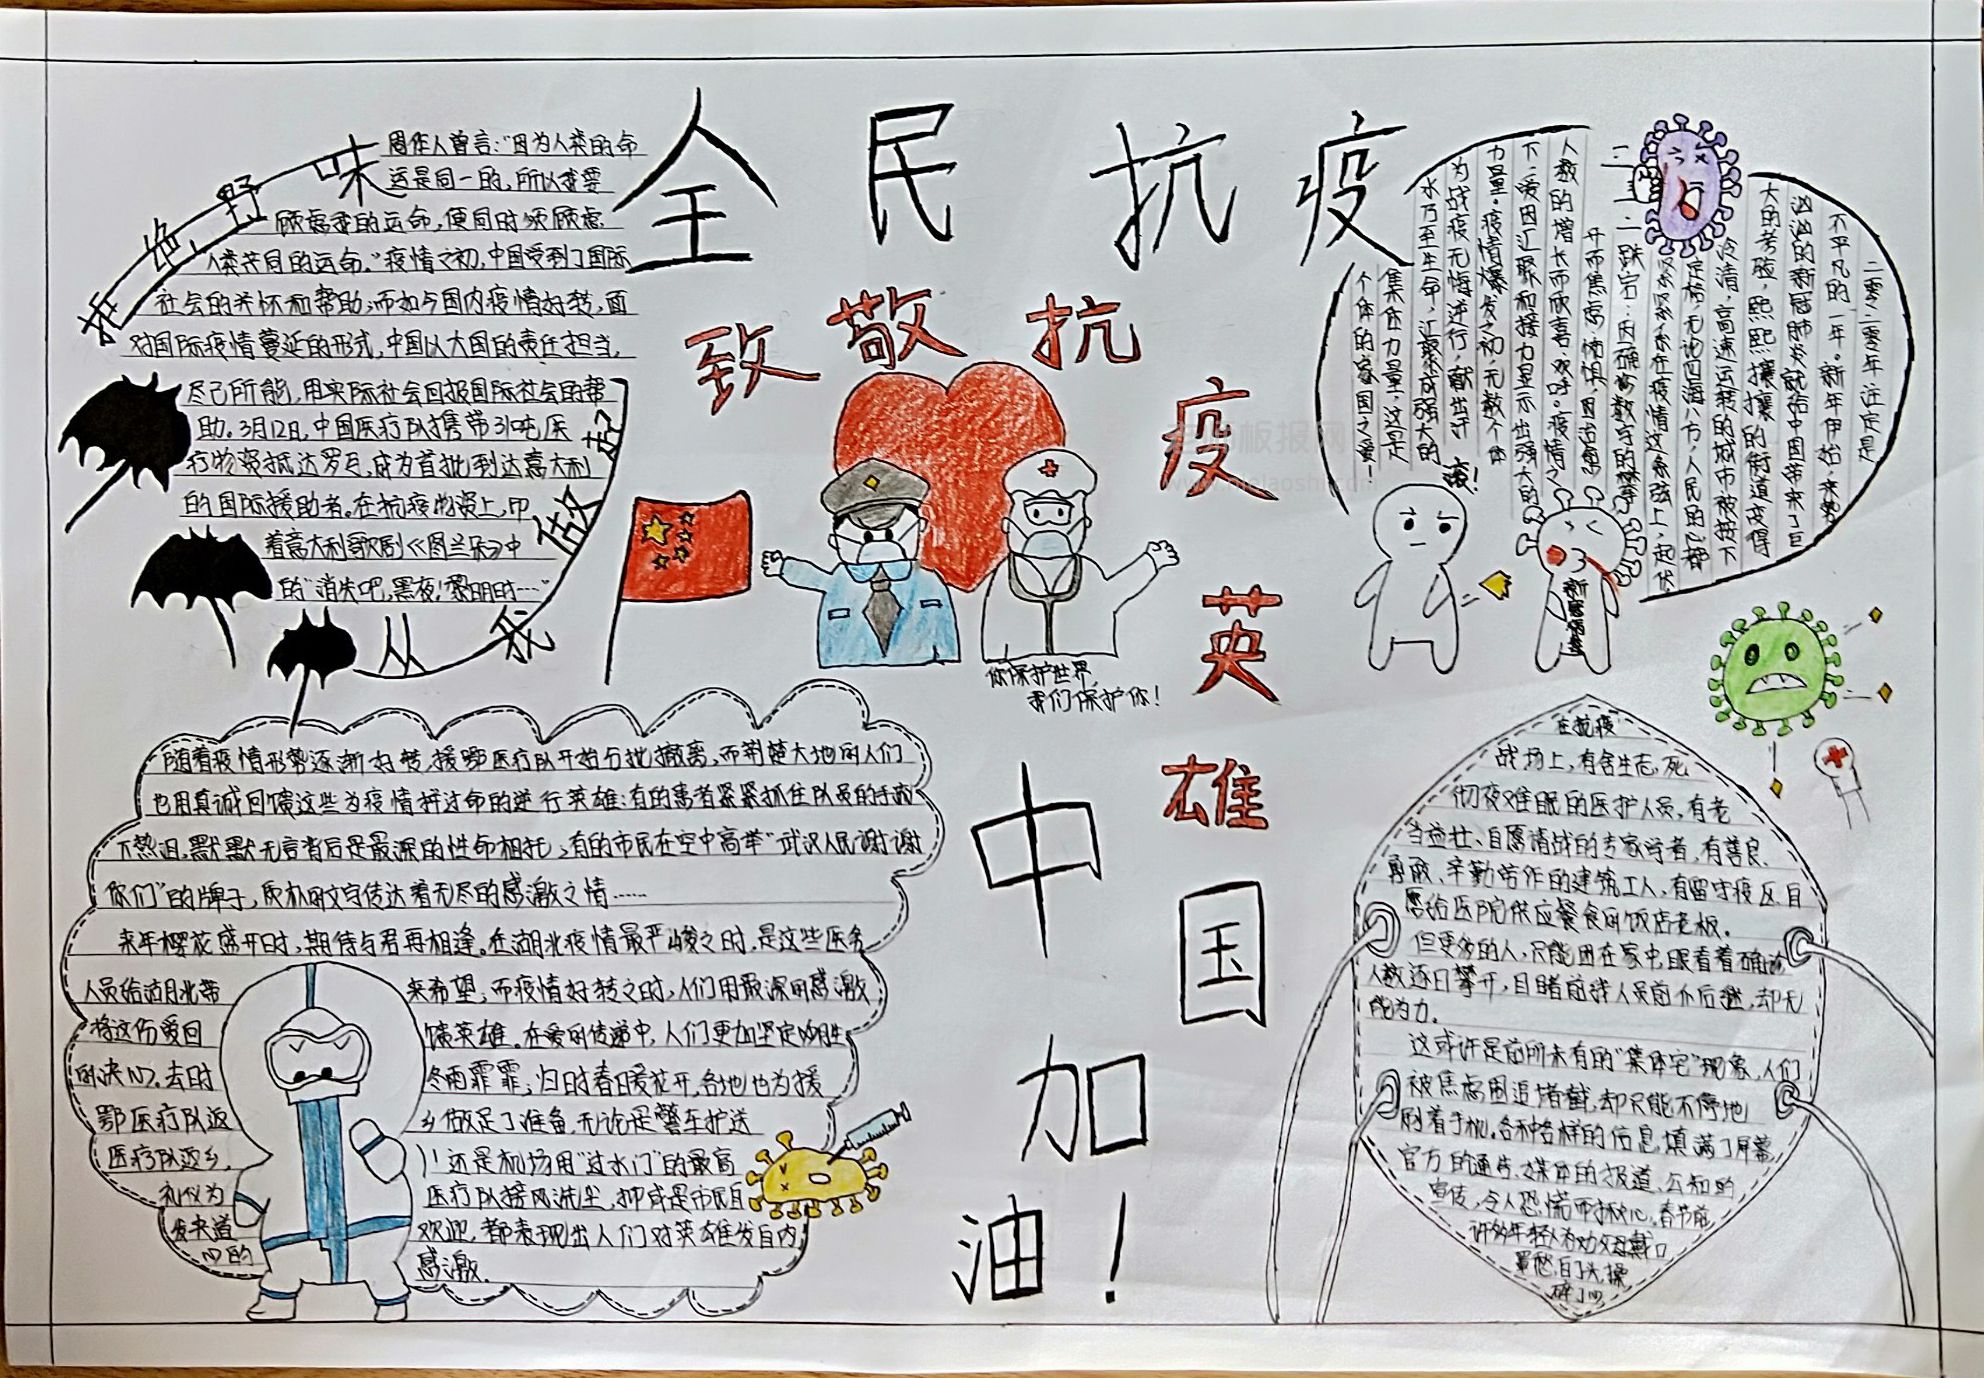 全民抗疫
致敬抗疫英雄
中国加油!
拒绝野味
从我做起
周作人曾言:“因为人类的命
运是同一的,所以我要
顾虑我的运命,便同时须顾虑
人类共同的运命。”疫情之初,中国受到了国际
社会的关怀和帮助,而如今国内疫情好转,面
对国际疫情蔓延的形式,中国以大国的责任担当,
尽己所能,用实际社会回报国际社会的帮
助。3月12日,中国医疗队携带31吨医
疗物资抵达罗马,成为首批到达意大利
的国际援助者。在抗疫物资上,印
着意大利歌剧《图兰朵》中
的“消失吧,黑夜!黎明时……”
你保护世界,
我们保护你!
二零二零年注定是
不平凡的一年。新年伊始,来势
汹汹的新冠肺炎就给中国带来了巨
大的考验,熙熙攘攘的街道变得
冷清,高速运转的城市被按下
定格,无论四海八方,人民的心都
紧紧系在疫情这条弦上,起伏
跌宕:因确诊数字的攀
升而焦虑、怖惧,因治愈
人数的增长而欣喜、欢呼。疫情之
下,爱因汇聚和接力显示出强大的
力量。疫情爆发之初,无数个体
为战疫无悔逆行,献出汗
水乃至生命,汇聚成强大的
集体力量,这是
个体的家国之爱!
疫!
新冠病毒
随着疫情形势逐渐好转,援鄂医疗队开始分批撤离,而荆楚大地的人们
也用真诚回馈这些为疫情拼过命的逆行英雄:有的患者紧紧抓住队员的手
下热泪,默默无言背后是最深的性命相托;有的市民在空中高举“武汉人民谢谢
你们”的牌子,质朴的文字传达着无尽的感激之情……
来年樱花盛开时,期待与君再相逢。在湖北疫情最严峻之时,是这些医务
人员给湖北带 来希望;而疫情好转之时,人们用最深的感激
将这份爱回 馈英雄。在爱的传递中,人们更加坚定必胜
的决心。去时 冬雨霏霏;归时春暖花开,各地也为援
鄂医疗队返 乡做足了准备,无论是警车护送
医疗队返乡, 还是机场用“过水门”的最高
礼仪为 医疗队接风洗尘,抑或是市民自
发夹道 欢迎,都表现出人们对英雄发自内
心的 感激。
在抗疫
战场上,有舍生忘死、
彻夜难眠的医护人员,有老
当益壮、自愿请战的专家学者,有善良、
勇敢、辛勤劳作的建筑工人,有留守疫区、自
愿给医院供应餐食的饭店老板。
但更多的人,只能困在家中,眼看着确诊
人数逐日攀升,目睹前线人员前仆后继,却无
能为力。
这或许是前所未有的“集体宅”现象,人们
被焦虑围追堵截,却只能不停地
刷着手机。各种各样的信息填满了屏幕,
官方的通告、媒体的报道、公知的
宣传,令人恐慌而揪心。春节前,
许多年轻人为劝父母戴口
罩愁白了头,操
碎了心